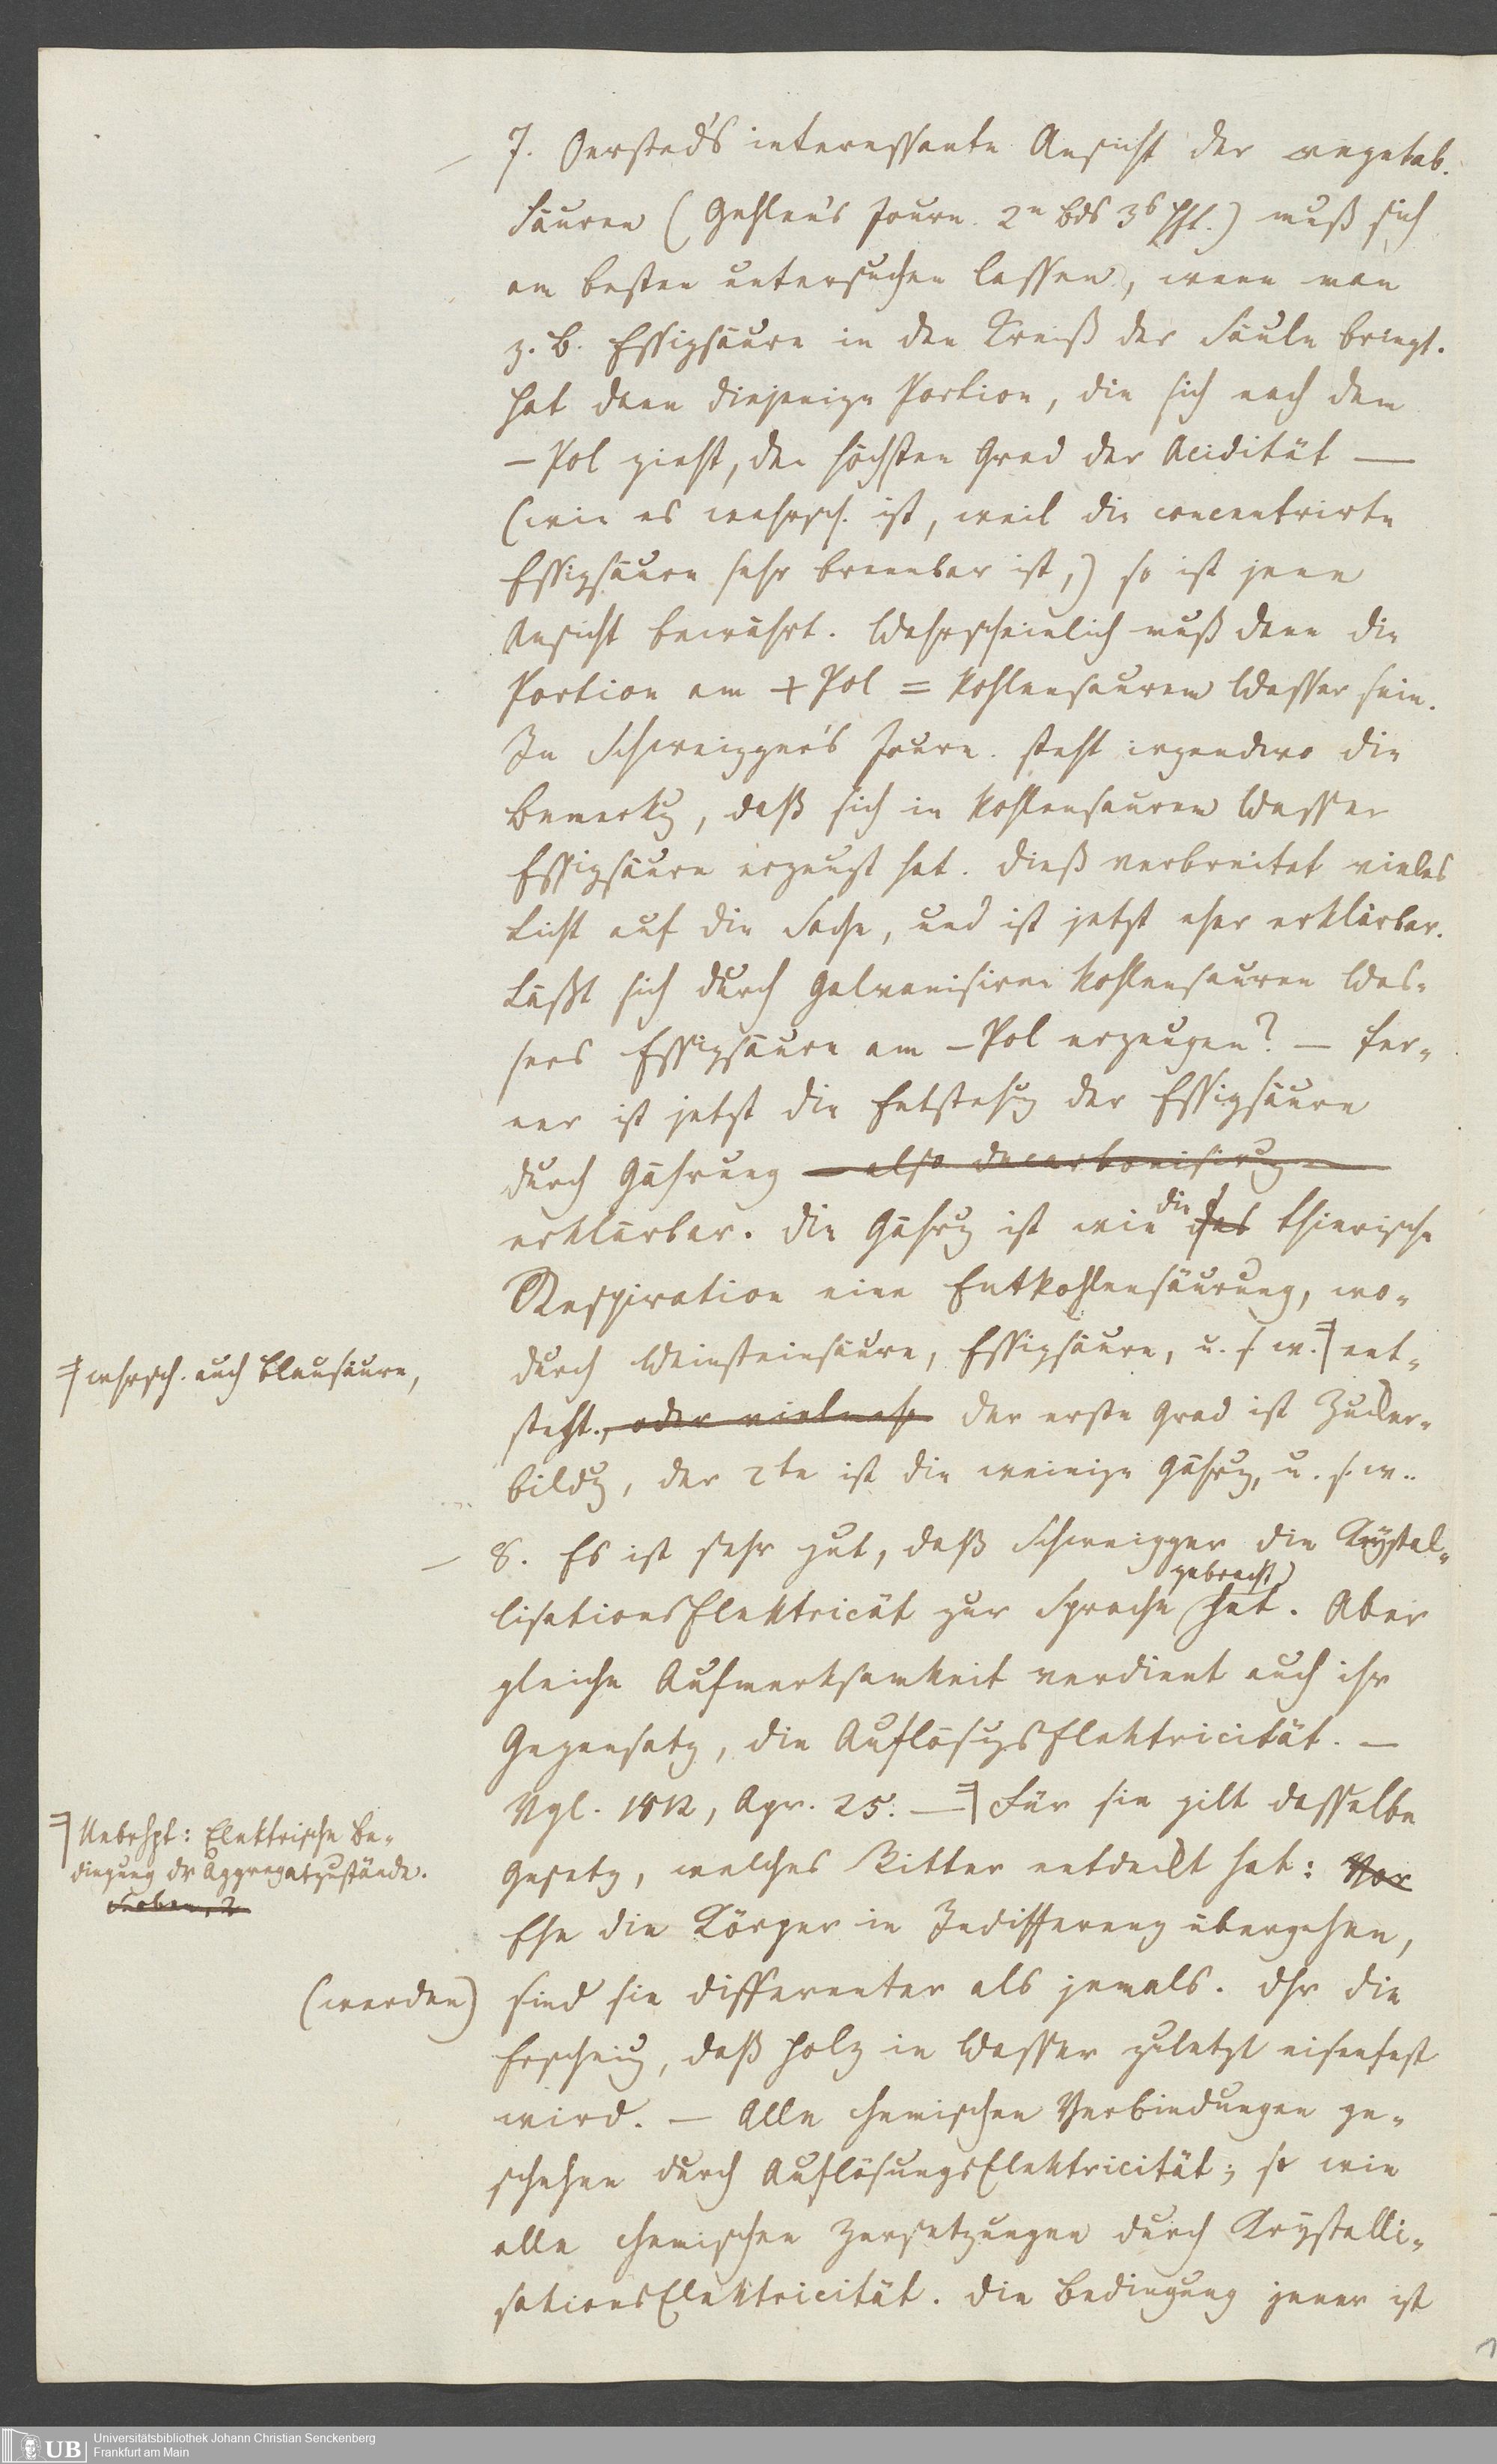 — 7. Oersted's interessante Ansicht der vegetab.
Säuren (Gehlen's Journ. 2n Bds 3s Hft.) muß sich
am besten untersuchen lassen, wenn man
z. B. Essigsäure in den Kreiß der Säule bringt.
Hat dann diejenige Portion, die sich nach dem
– Pol zieht, den höchsten Grad der Acidität —
(wie es wahrsch. ist, weil die concentrirte
Essigsäure sehr brennbar ist,) so ist jene
Ansicht bewährt. Wahrscheinlich muß dann die
Portion am + Pol = kohlensaurem Wasser sein.
In Schweigger's Journ. steht irgendwo die
Bemerkg, daß sich in kohlensaurem Wasser
Essigsäure erzeugt hat. Dieß verbreitet vieles
Licht auf die Sache, und ist jetzt eher erklärbar.
Läßt sich durch Galvanisiren kohlensauren Was-
sers Essigsäure am – Pol erzeugen? — Fer-
ner ist jetzt die Entstehug der Essigsäure
durch Gährung — also decarbonisirug —
erklärbar. Die Gährg ist wie die das thierische
Respiration eine Entkohlensäurung, wo-
durch Weinsteinsäure, Essigsäure, u. s. w. ent-
⌉ wahrsch. auch Blausäure,
steht., oder vielmehr der erste Grad ist Zucker-
bildg, der 2te ist die weinige Gährg, u. s. w..
— 8. Es ist sehr gut, daß Schweigger die Krystal-
gebracht
lisationsElektricät zur Sprache hat. Aber
gleiche Aufmerksamkeit verdient auch ihr
Gegensatz, die AuflösugsElektricität. —
Vgl. 1812, Apr. 25. — ⌉ Für sie gilt dasselbe
⌉ Uebrhpt: Elektrische Be-
dingung dr Aggregatzustände.
Gesetz, welches Ritter entdeckt hat: Vor
Ehe die Körper in Indifferenz übergehen,
(werden) sind sie differenter als jemals. Dhr die
Erscheing, daß Holz in Wasser zuletzt eisenfest
wird. — Alle chemischen Verbindungen ge-
schehen durch AuflösungsElektricität; so wie
alle chemischen Zersetzungen durch Krystalli-
sationsElektricität. Die Bedingung jener ist
UB Universitätsbibliothek Johann Christian Senckenberg
Frankfurt am Main